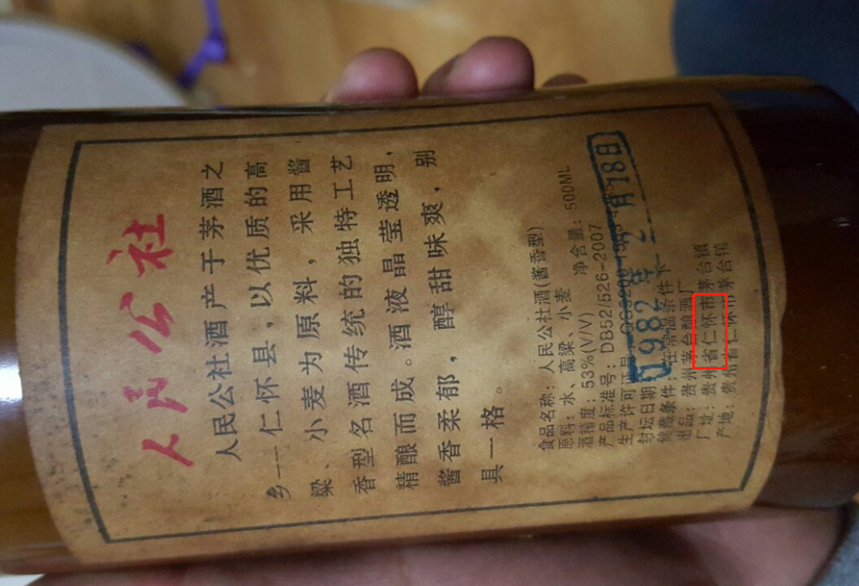 人民公社
人民公社酒产于茅酒之
乡——仁怀县，以优质的高
粱、小麦为原料，采用酱
香型名酒传统的独特工艺
精酿而成。酒液晶莹透明，
酱香柔郁，醇甜味爽，别
具一格。
食品名称：人民公社酒(酱香型)
原料：水、高粱、小麦 净含量：500ML
酒精度：53%(V/V)
产品标准号：DB52/526-2007
生产许可证号
封坛日期
1982年2月18日
储藏条件：在常温条件下
出品：贵州茅台酿酒厂
厂址：贵州省仁怀市茅台镇
产地：贵州省仁怀市茅台镇